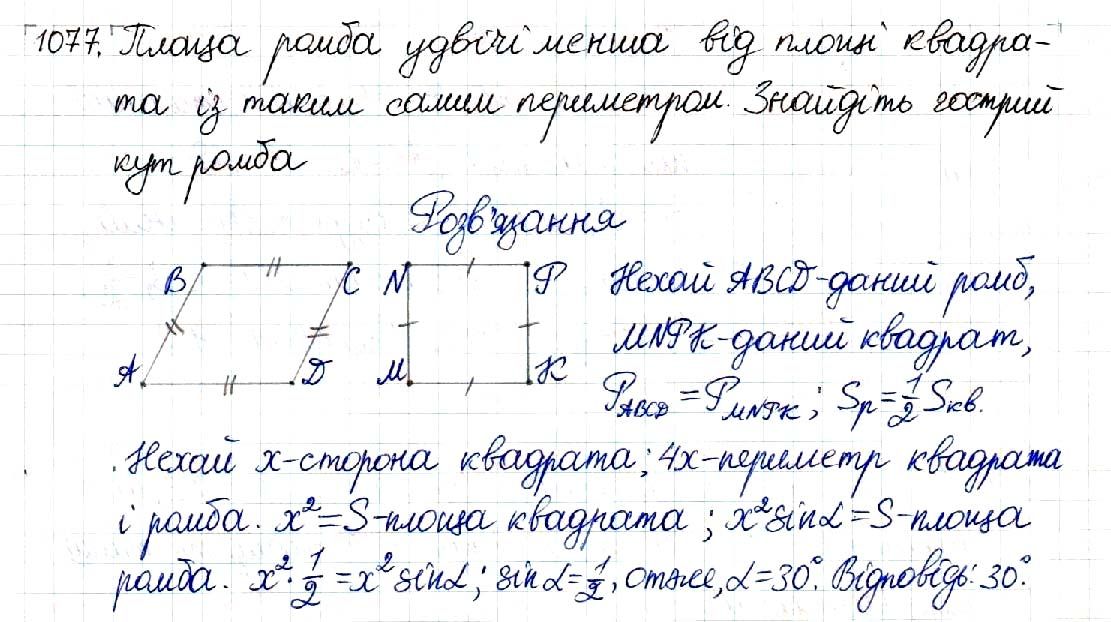 1077. Площа ромба удвічі менша від площі квадра-
та із таким самим периметром. Знайдіть гострий
кут ромба
Розв'язання
B C N P
A D M K
Нехай ABCD-даний ромб,
MNPK-даний квадрат,
P_ABCD = P_MNPK; Sр = 1/2 Sкв.
Нехай x-сторона квадрата; 4x-периметр квадрата
і ромба. x² = S-площа квадрата; x² sinα = S-площа
ромба. x² · 1/2 = x² sinα; sinα = 1/2, отже, α = 30°. Відповідь: 30°.